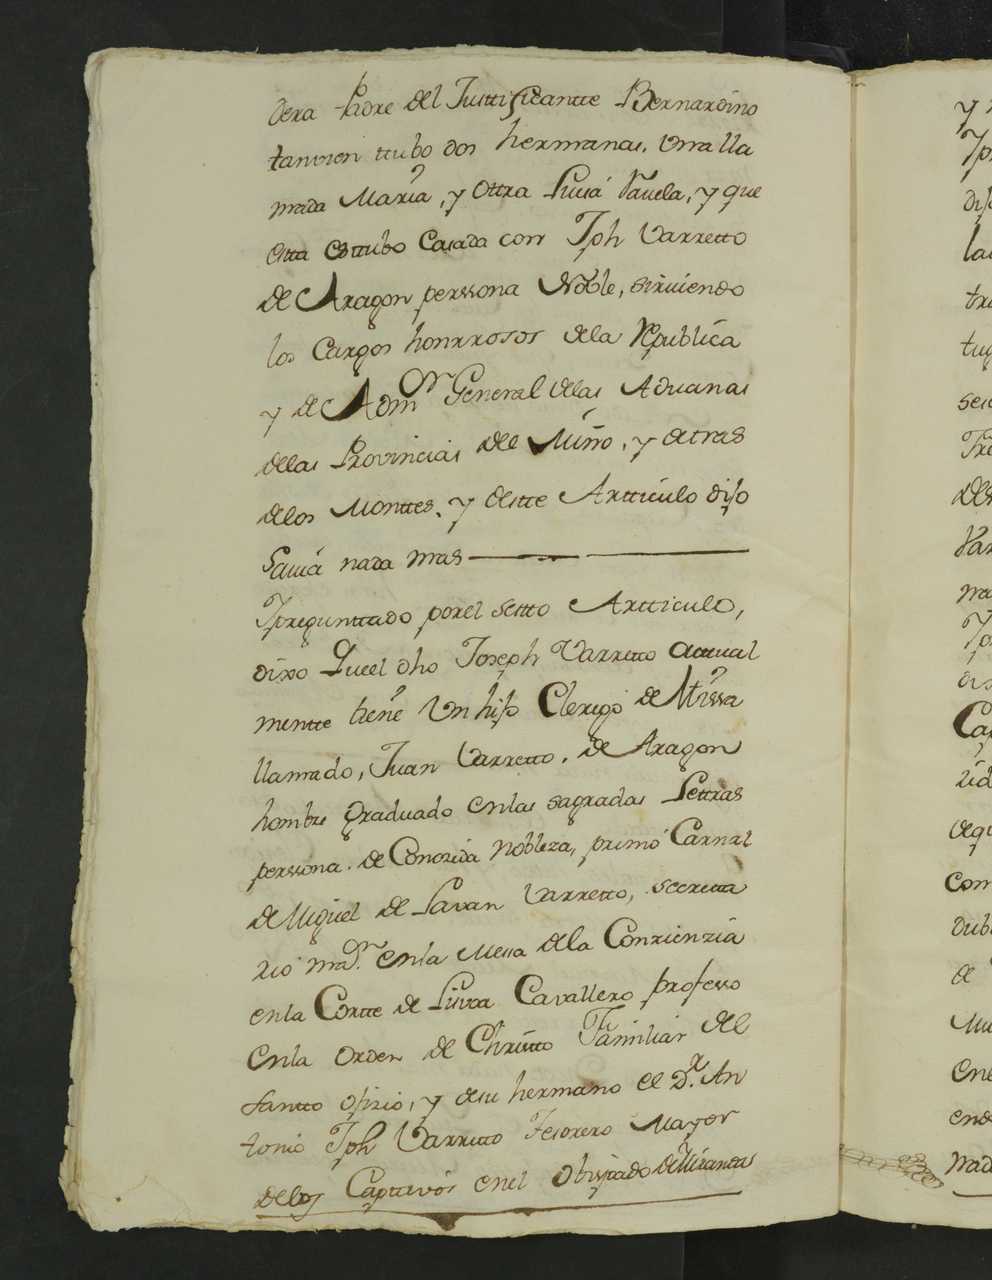 dera Padre del Justtificantte Bernardino
tanvien ttubo dos hermanas, Vna lla
mada Maria, y ottra Luisá Varela, y que
estta esttubo Casada con Jph Varretto
de Aragon perssona Noble, sirviendo
los Cargos honrrosos dela Republica
y de Admor General delas Aduanas
delas Provincias del Miño, y detras
delos Monttes, y deste Artticulo dijo
Savia nada mas
Ypregunttado porel setto Artticulo,
dixo Queel dho Joseph Varretto acttual
mentte tiene Vn hijo Clerigo de Missa
llamado, Juan Varretto, de Aragon
hombre graduado enlas sagradas Lettras
perssona. de Conozida Nobleza, primo Carnal
de Miguel de Pavan Varretto, secretta
rio mar. enla Messa dela Conzienzia
enla Cortte de Lisvoa Cavallero professo
Enla Orden de Christto Familiar del
Santto ofizio, y desu hermano el Dr. An
tonio Jph Varretto Tesorero Mayor
delos Capttivos enel Obispado de Miranda